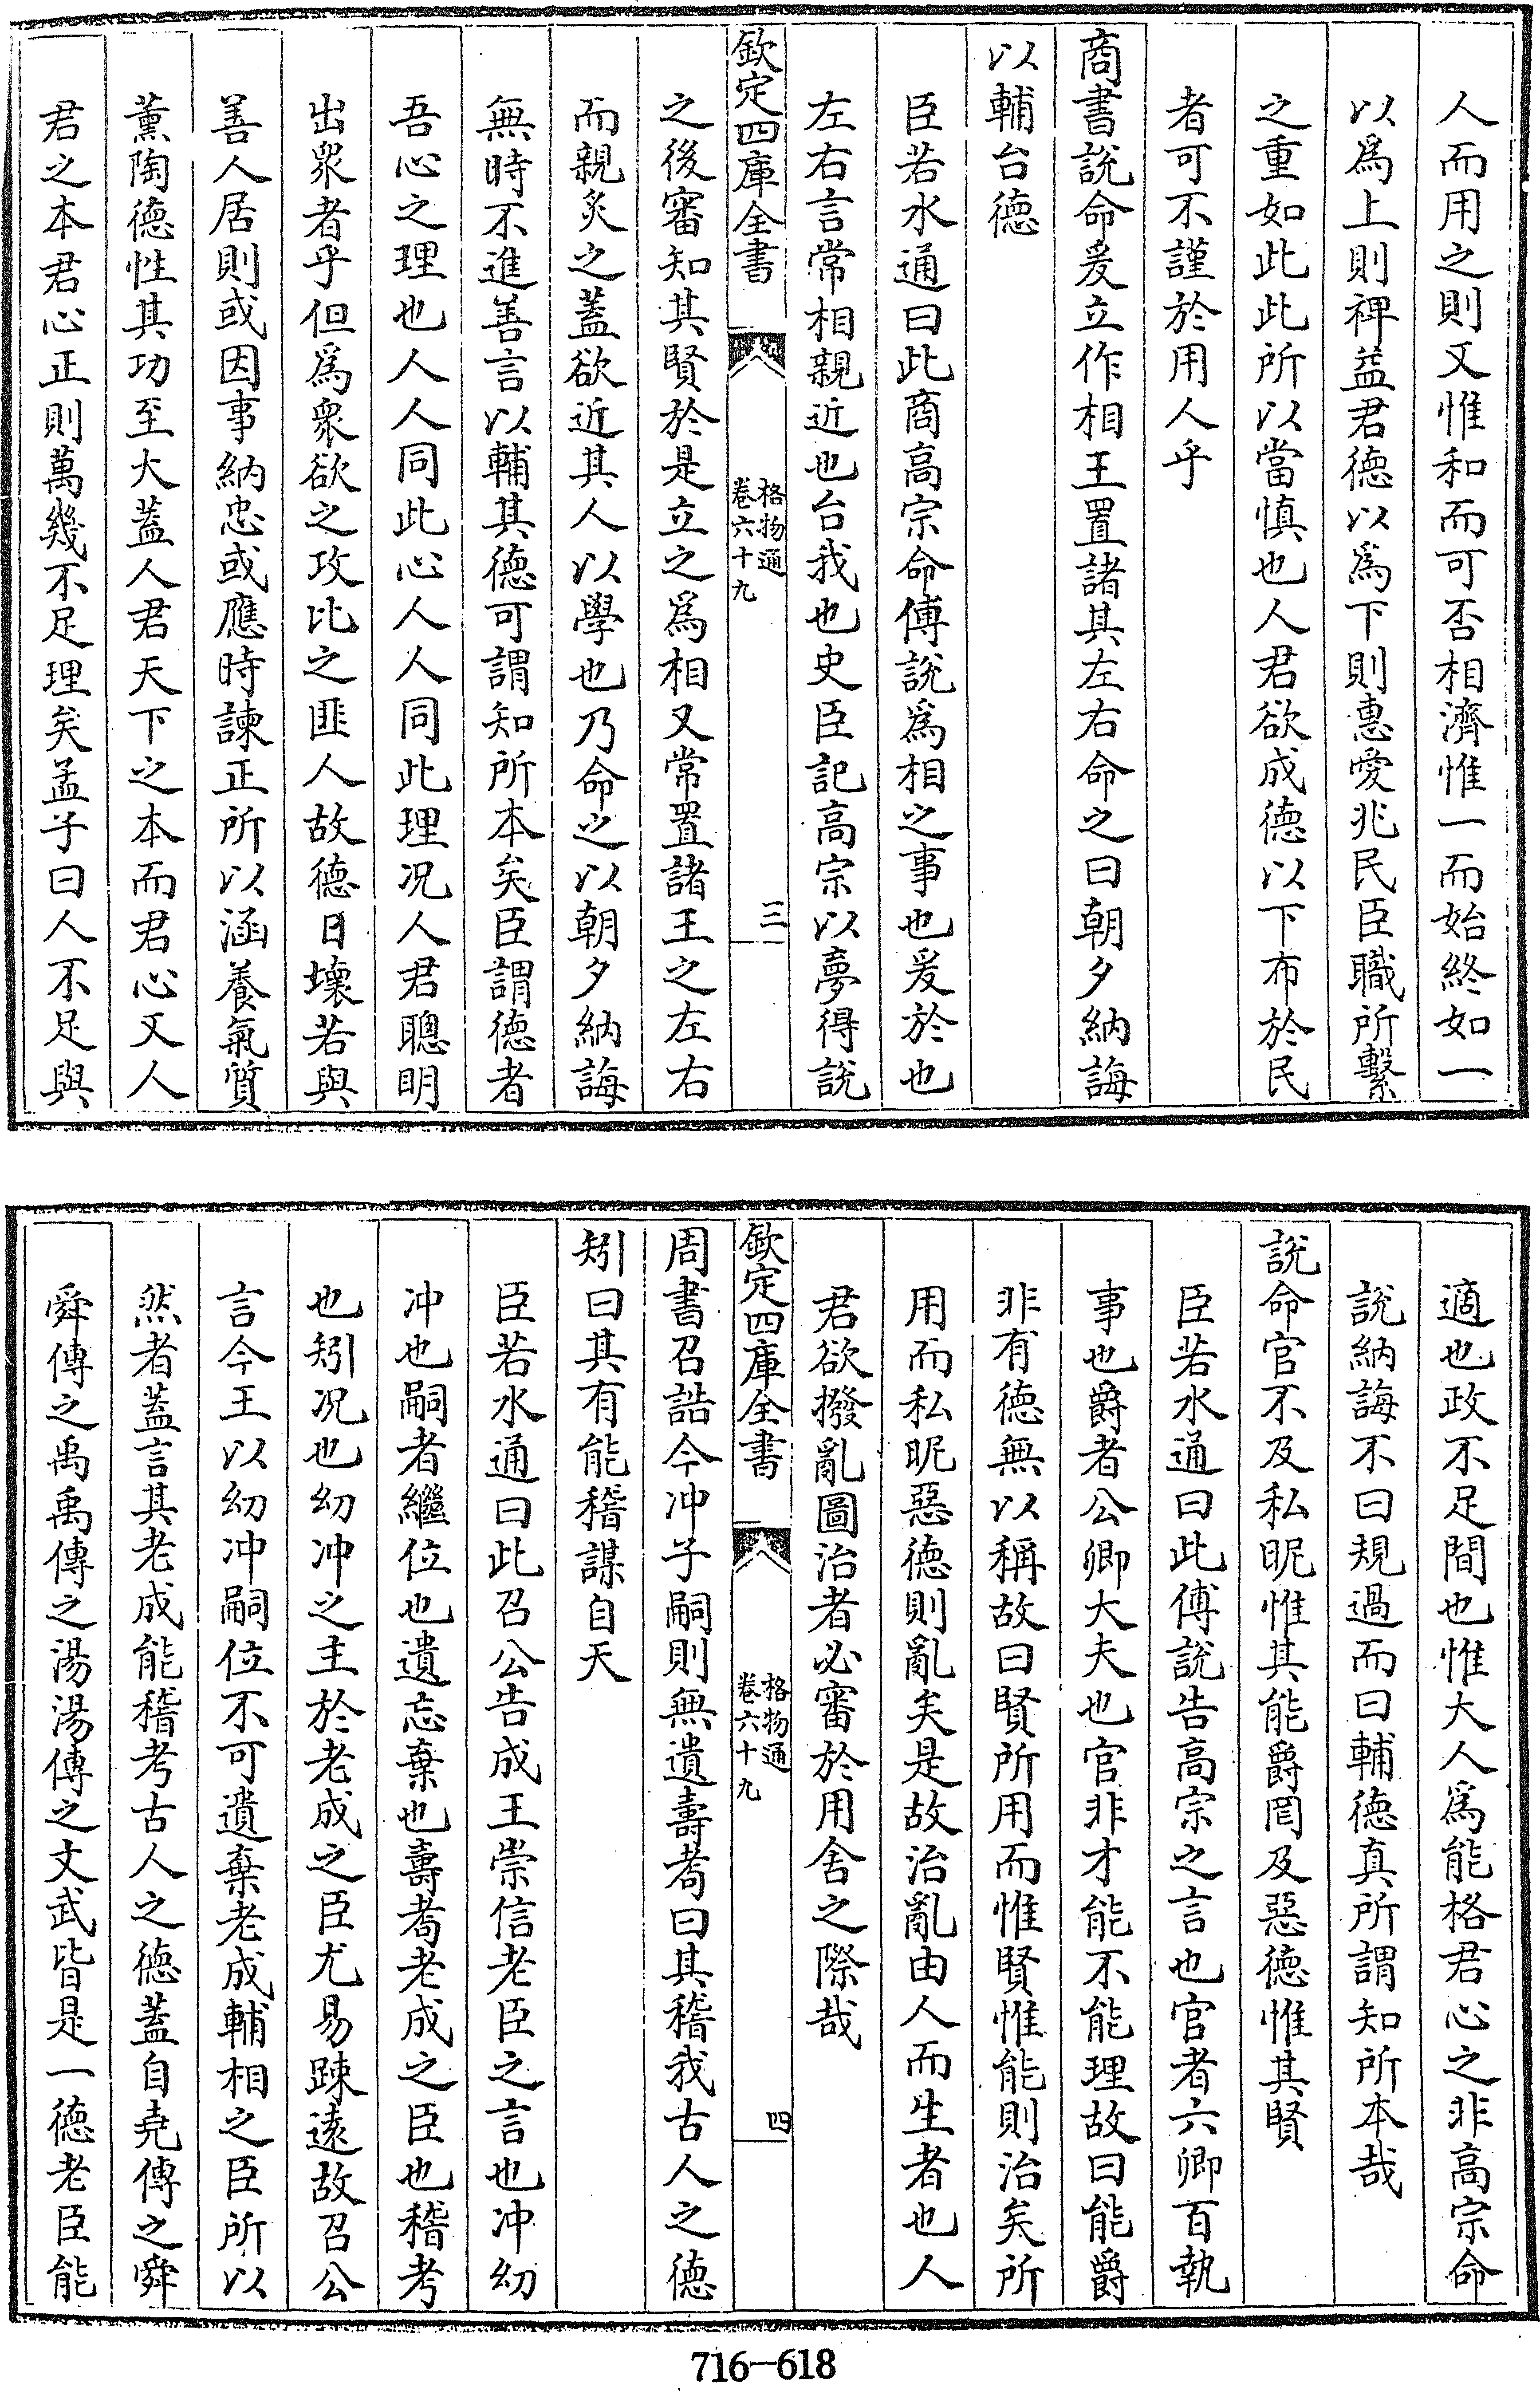 人而用之則又惟和而可否相濟惟一而始終如一
以爲上則裨益君德以爲下則惠愛兆民臣職所繫
之重如此此所以當慎也人君欲成德以下布於民
者可不謹於用人乎
商書說命爰立作相王置諸其左右命之曰朝夕納誨
以輔台德
臣若水通曰此商高宗命傅說爲相之事也爰於也
左右言常相親近也台我也史臣記高宗以夢得說
欽定四庫全書
格物通
卷六十九
三
之後審知其賢於是立之爲相又常置諸王之左右
而親炙之蓋欲近其人以學也乃命之以朝夕納誨
無時不進善言以輔其德可謂知所本矣臣謂德者
吾心之理也人人同此心人人同此理况人君聰明
出衆者乎但爲衆欲之攻比之匪人故德日壞若與
善人居則或因事納忠或應時諫正所以涵養氣質
薰陶德性其功至大蓋人君天下之本而君心又人
君之本君心正則萬幾不足理矣孟子曰人不足與
適也政不足間也惟大人爲能格君心之非高宗命
說納誨不曰規過而曰輔德真所謂知所本哉
說命官不及私昵惟其能爵罔及惡德惟其賢
臣若水通曰此傅說告高宗之言也官者六卿百執
事也爵者公卿大夫也官非才能不能理故曰能爵
非有德無以稱故曰賢所用而惟賢惟能則治矣所
用而私昵惡德則亂矣是故治亂由人而生者也人
君欲撥亂圖治者必審於用舍之際哉
欽定四庫全書
格物通
卷六十九
四
周書召誥今冲子嗣則無遺壽耇曰其稽我古人之德
矧曰其有能稽謀自天
臣若水通曰此召公告成王崇信老臣之言也冲幼
冲也嗣者繼位也遺忘棄也壽耇老成之臣也稽考
也矧况也幼冲之主於老成之臣尤易踈遠故召公
言今王以幼冲嗣位不可遺棄老成輔相之臣所以
然者蓋言其老成能稽考古人之德蓋自堯傳之舜
舜傳之禹禹傳之湯湯傳之文武皆是一德老臣能
716-618